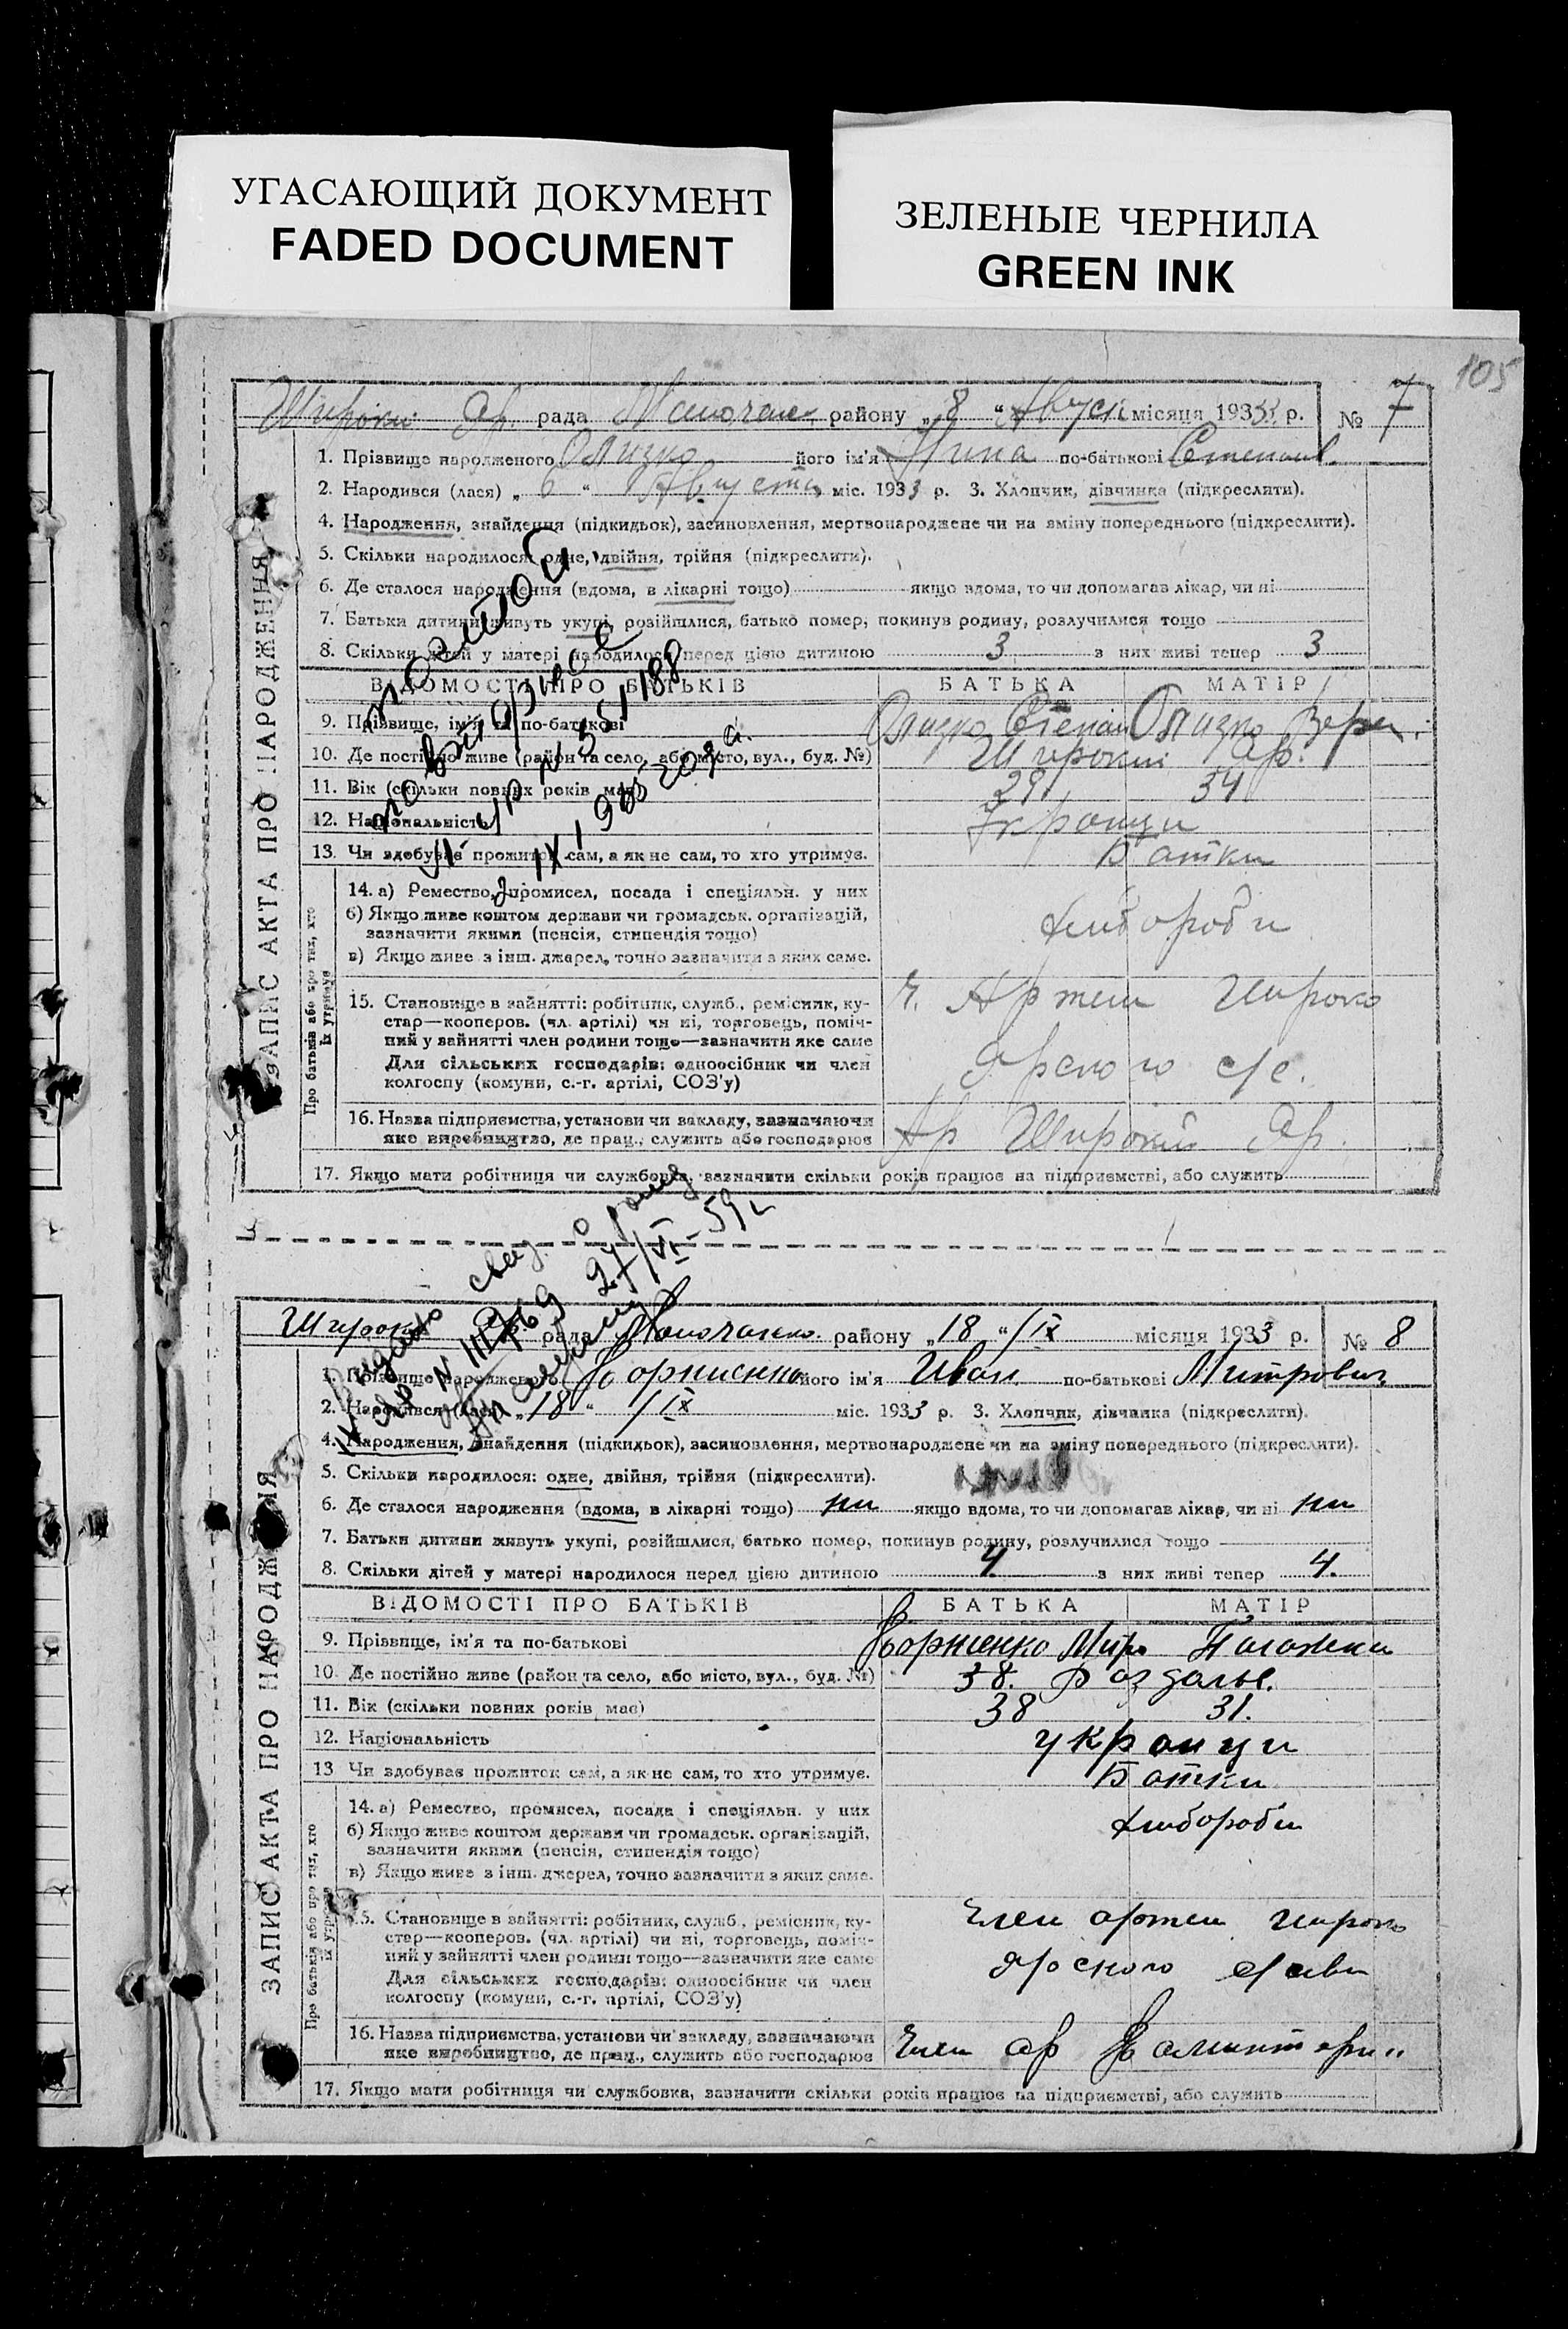 УГАСАЮЩИЙ ДОКУМЕНТ
FADED DOCUMENT
ЗЕЛЕНЫЕ ЧЕРНИЛА
GREEN INK
105
ЗАПИС АКТА ПРО НАРОДЖЕННЯ
Яр. рада району „8“ місяця 1933 р. № 7
1. Прізвище народженого його ім'я Нина по-батькові Степан
2. Народився (лася) „6“ Августа міс. 1933 р. 3. Хлопчик, дівчинка (підкреслити).
4. Народження, знайдення (підкидьок), засиновлення, мертвонароджене чи на зміну попереднього (підкреслити).
5. Скільки народилося: одне, двійня, трійня (підкреслити).
6. Де сталося народження (вдома, в лікарні тощо) якщо вдома, то чи допомагав лікар, чи ні
7. Батьки дитини живуть укупі, розійшлися, батько помер, покинув родину, розлучилися тощо
8. Скільки дітей у матері народилося перед цією дитиною 3 з них живі тепер 3
ВІДОМОСТІ ПРО БАТЬКІВ БАТЬКА МАТІР
9. Прізвище, ім'я та по-батькові Степан Вера
10. Де постійно живе (район та село, або місто, вул., буд. №) Широкий Яр.
11. Вік (скільки повних років має) 29 34
12. Національність Укр
13. Чи здобуває прожиток сам, а як не сам, то хто утримує. Батки
Про батьків або про тих, хто їх утримує
14. а) Ремество, промисел, посада і спеціяльн. у них
б) Якщо живе коштом держави чи громадськ. організацій,
зазначити якими (пенсія, стипендія тощо) хлибороби
в) Якщо живе з інш. джерел, точно зазначити з яких саме.
15. Становище в зайнятті: робітник, служб., ремісник, ку- Артели Широко
стар—кооперов. (чл. артілі) чи ні, торговець, поміч-
ний у зайнятті член родини тощо—зазначити яке саме
Для сільських господарів: одноосібник чи член Ярского с/с.
колгоспу (комуни, с.-г. артілі, СОЗ'у)
16. Назва підприємства, установи чи закладу, зазначаючи
яке виробництво, де прац., служить або господарює Ар Широкий Яр.
17. Якщо мати робітниця чи службовка, зазначити скільки років працює на підприємстві, або служить
ЗАПИС АКТА ПРО НАРОДЖЕННЯ
27/VI-59г
Широк рада району „18“ /IX місяця 1933 р. № 8
1. Прізвище народженого його ім'я Иван по-батькові Митрович
2. Народився (лася) „18“ /IX міс. 1933 р. 3. Хлопчик, дівчинка (підкреслити).
4. Народження, знайдення (підкидьок), засиновлення, мертвонароджене чи на зміну попереднього (підкреслити).
5. Скільки народилося: одне, двійня, трійня (підкреслити).
6. Де сталося народження (вдома, в лікарні тощо) ни якщо вдома, то чи допомагав лікар, чи ні ни
7. Батьки дитини живуть укупі, розійшлися, батько помер, покинув родину, розлучилися тощо
8. Скільки дітей у матері народилося перед цією дитиною 4 з них живі тепер 4.
ВІДОМОСТІ ПРО БАТЬКІВ БАТЬКА МАТІР
9. Прізвище, ім'я та по-батькові Митро
10. Де постійно живе (район та село, або місто, вул., буд. №) 38.
11. Вік (скільки повних років має) 38 31.
12. Національність украинци
13. Чи здобуває прожиток сам, а як не сам, то хто утримує. Батки
Про батьків або про тих, хто їх утримує
14. а) Ремество, промисел, посада і спеціяльн. у них
б) Якщо живе коштом держави чи громадськ. організацій, хлибороби
зазначити якими (пенсія, стипендія тощо)
в) Якщо живе з інш. джерел, точно зазначити з яких саме.
15. Становище в зайнятті: робітник, служб., ремісник, ку- Член артели широко
стар—кооперов. (чл. артілі) чи ні, торговець, поміч-
ний у зайнятті член родини тощо—зазначити яке саме ярского
Для сільських господарів: одноосібник чи член
колгоспу (комуни, с.-г. артілі, СОЗ'у)
16. Назва підприємства, установи чи закладу, зазначаючи
яке виробництво, де прац., служить або господарює Член ар Каминтерн"
17. Якщо мати робітниця чи службовка, зазначити скільки років працює на підприємстві, або служить